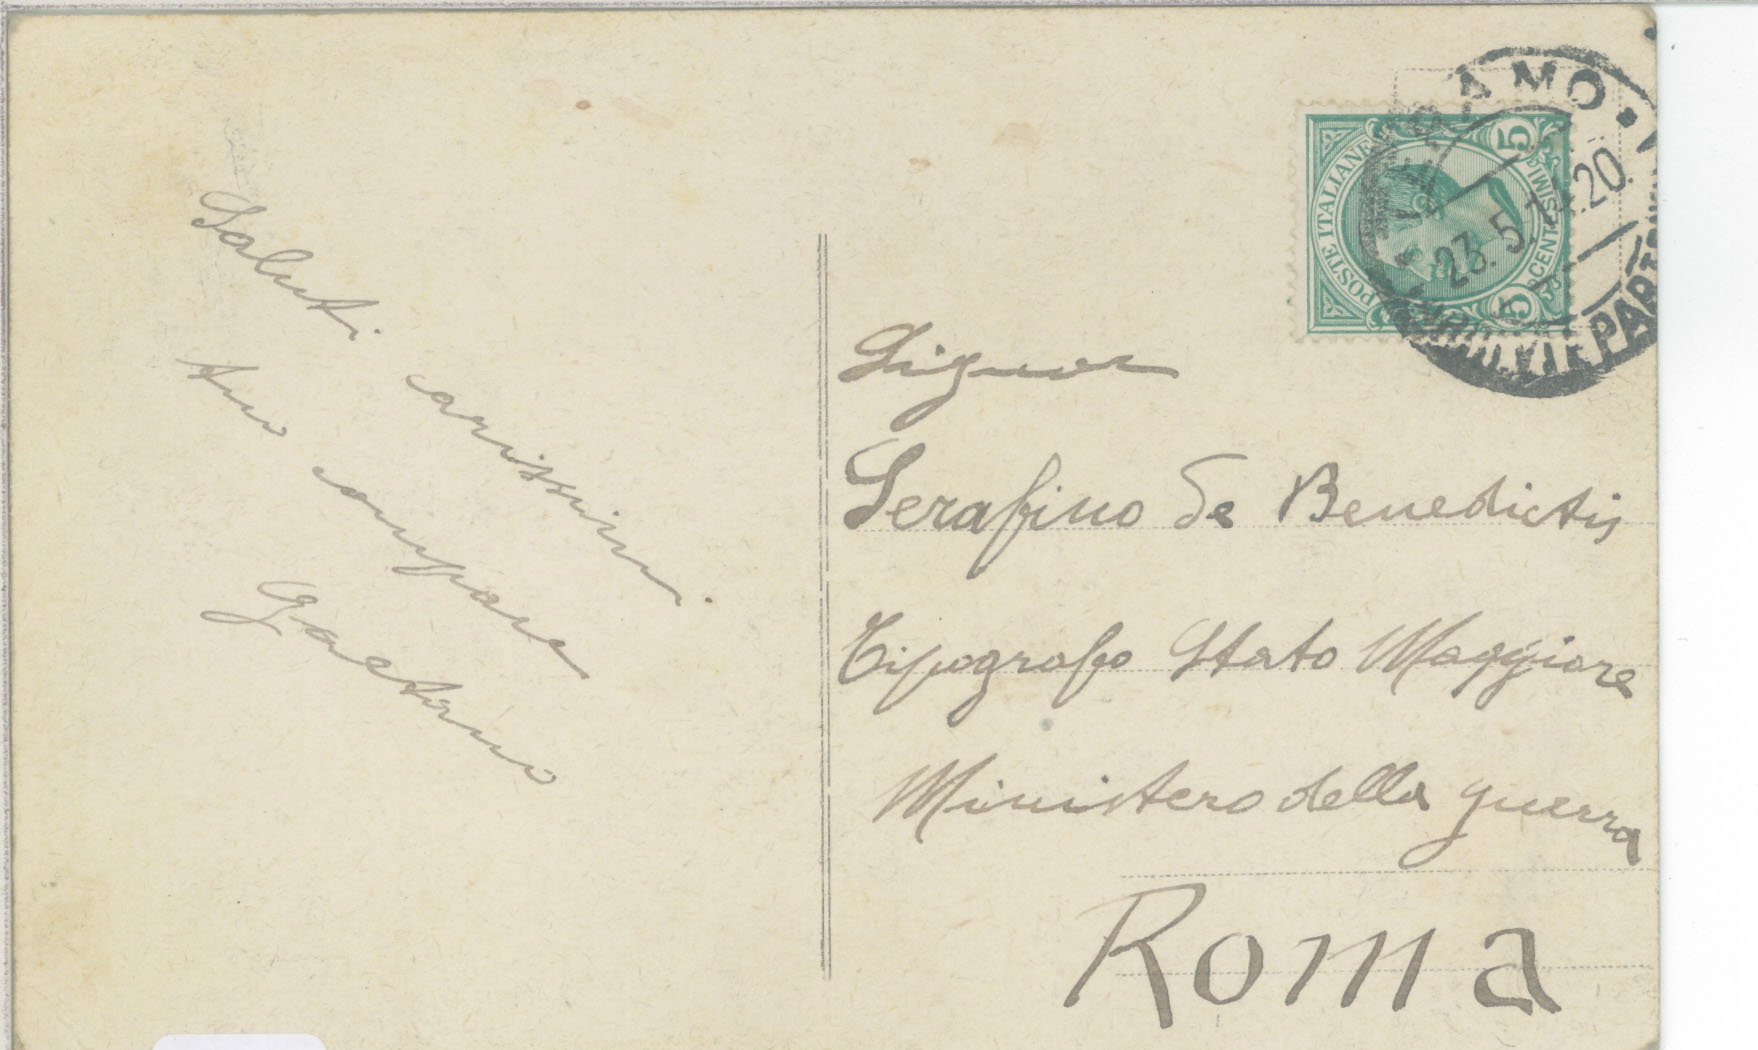 Saluti carissimi.
tuo compare
Gaetano
POSTE ITALIANE
CENTESIMI
5 5
AMO
23.5.14.20
PART
Signor
Serafino de Benedictis
Tipografo Stato Maggiore
Ministero della guerra
Roma